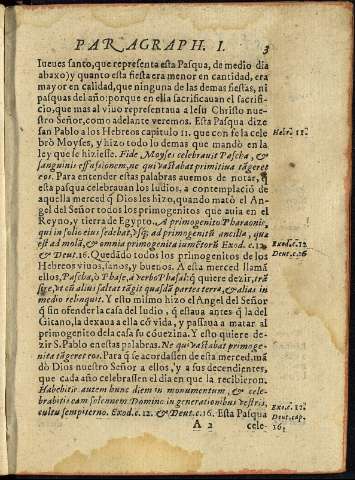 PARAGRAPH. I. 3
Iueues santo, que representa esta Pasqua, de medio dia
abaxo) y quanto esta fiesta era menor en cantidad, era
mayor en calidad, que ninguna de las demas fiestas, ni
pasquas del año: porque en ella sacrificauan el sacrifi-
cio, que mas al viuo representaua a Iesu Christo nues-
tro Señor, como adelante veremos. Esta Pasqua dize
san Pablo a los Hebreos capitulo 11. que con fe la cele
Hebr. 11.
brò Moyses, y hizo todo lo demas que mandò en la
ley que se hiziesse. Fide Moyses celebrauit Pascha, &
sanguinis effusionem, ne qui vastabat primitiua tãgeret
eos. Para entender estas palabras auemos de notar, q̃
esta pasqua celebrauan los Iudios, a contemplaciõ de
aquella merced q̃ Dios les hizo, quando matò el An-
gel del Señor todos los primogenitos que auia en el
Reyno, y tierra de Egypto. A primogenito Pharaonis,
qui in solio eius sedebat, vsq; ad primogenitũ ancillæ, quæ
est ad molã, & omnia primogenita iumẽtorũ Exod. c. 12.
Exod. c. 12
& Deut. 16. Quedãdo todos los primogenitos de los
Deut. c. 16
Hebreos viuos, sanos, y buenos. A esta merced llamã
ellos, Pascha, ò Phase, à verbo Phasal: q̃ quiere dezir, trã
sige, vt cũ alius saltat tãgit quasdã partes terræ, & alias in
medio relinquit. Y esto mismo hizo el Angel del Señor
q̃ sin ofender la casa del Iudio, q̃ estaua antes q̃ la del
Gitano, la dexaua a ella cõ vida, y passaua a matar al
primogenito de la casa su cõuezina. Y esto quiere de-
zir S. Pablo en estas palabras. Ne qui vastabat primoge-
nita tãgeret eos. Para q̃ se acordassen de esta merced, mã
dò Dios nuestro Señor a ellos, y a sus decendientes,
que cada año celebrassen el dia en que la recibieron.
Habebitis autem hunc diem in monumentum, & cele-
brabitis eam solennem Domino in generationibus vestris
cultu sempiterno. Exod. c. 12. & Deut. c. 16. Esta Pasqua
Exod. c. 12.
Deut. cap.
16.
A 2 cele-